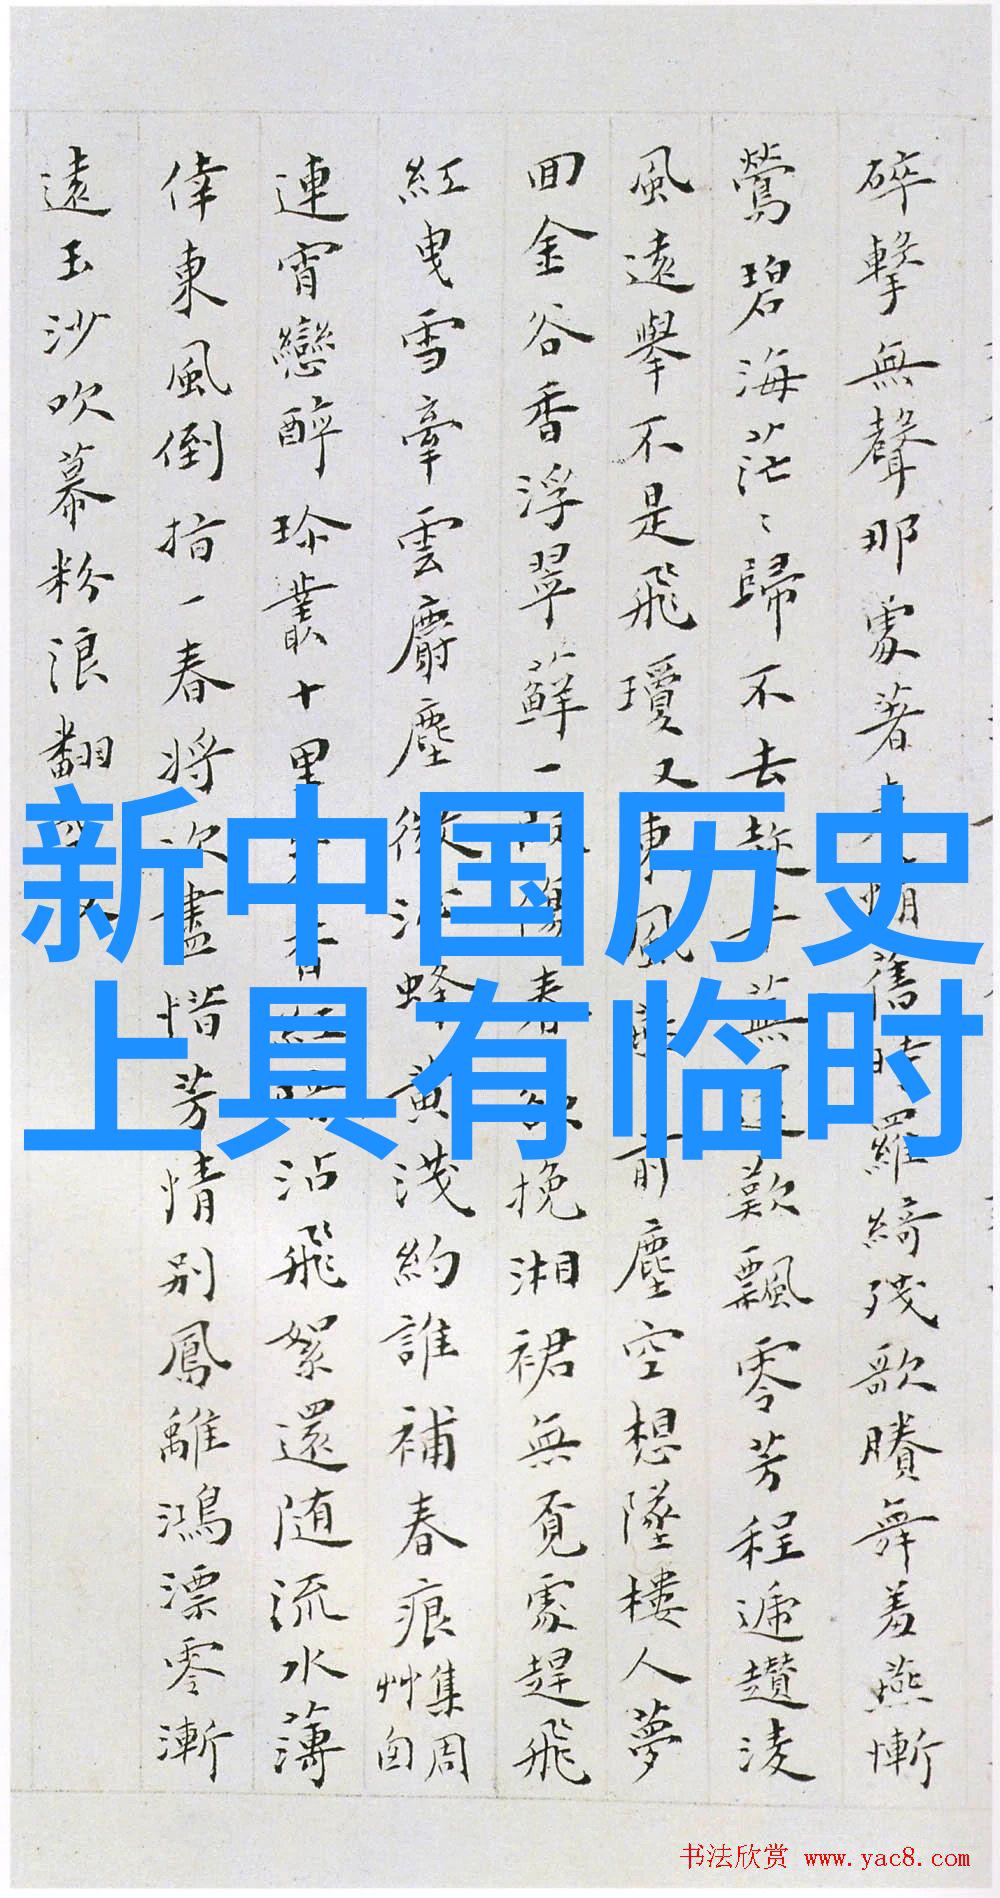 碎擊無聲那處著
舊時羅綺殘歌賸舞羞燕慚
鶯碧海茫茫歸不去
歎飄零芳程遞趲淩
風遠舉不是飛瓊又東風
前塵空想墜樓人夢
回金谷香浮翠蘚一
傷春
挽湘裙無覓處趕飛
紅曳雪牽雲麝塵微
蜂黃淺約誰補春痕
集周
艸囱
連宵戀醉珍叢十里
沾飛絮還隨流水薄
倖東風倒指一春將次盡惜芳情別鳳離鴻漂零漸
遠玉沙吹幕粉浪翻
新中国历史
上具有临时
书法欣赏 www.yac8.com